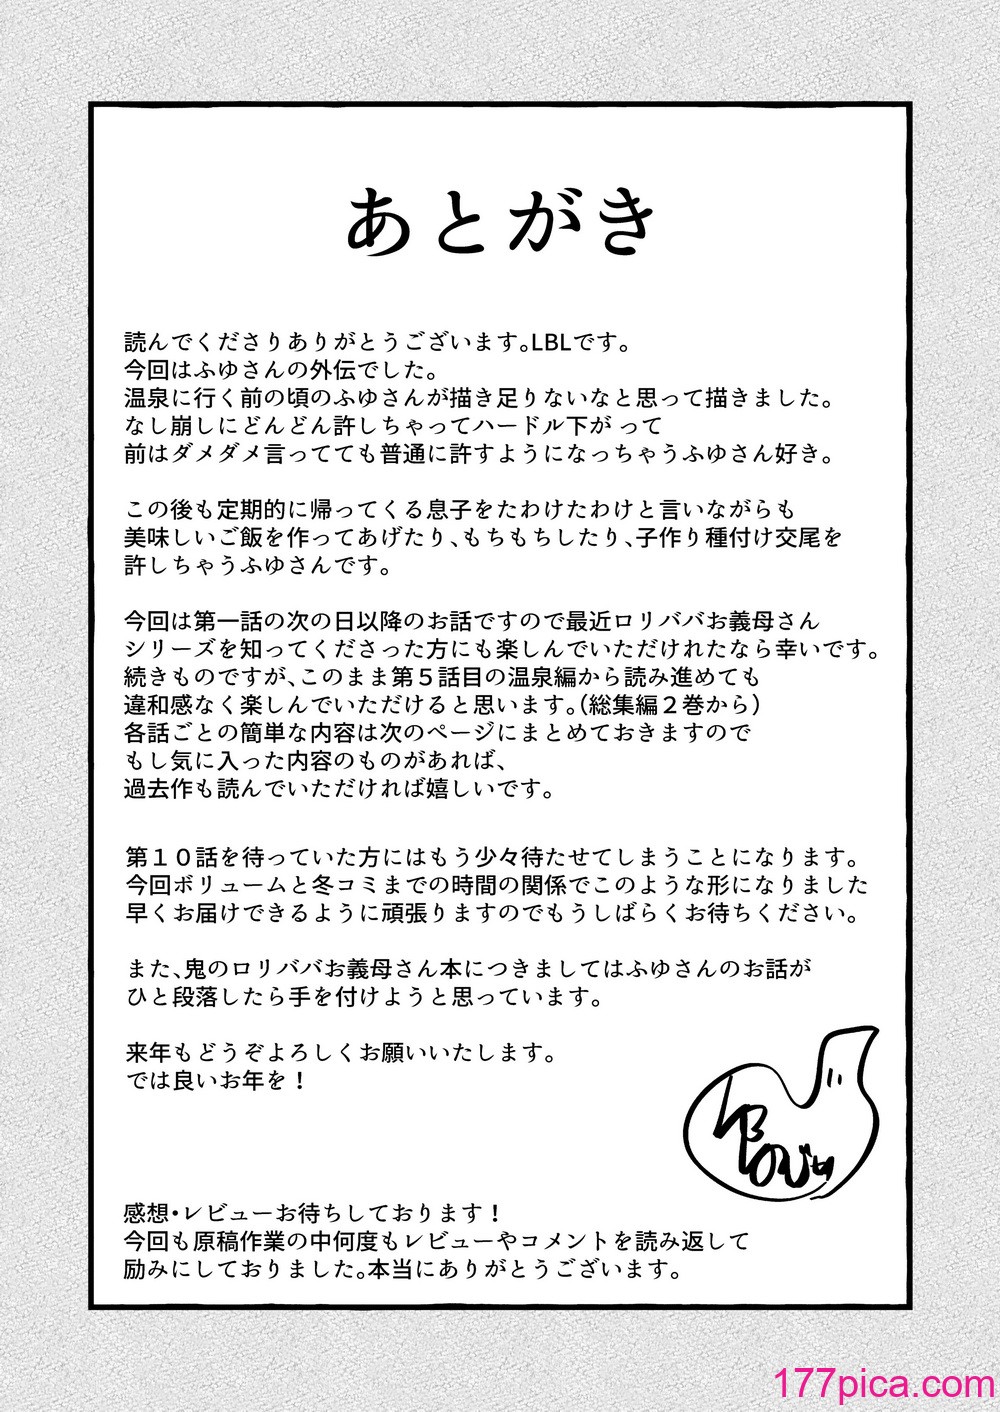 あとがき
読んでくださりありがとうございます。LBLです。
今回はふゆさんの外伝でした。
温泉に行く前の頃のふゆさんが描き足りないなと思って描きました。
なし崩しにどんどん許しちゃってハードル下がって
前はダメダメ言ってても普通に許すようになっちゃうふゆさん好き。
この後も定期的に帰ってくる息子をたわけたわけと言いながらも
美味しいご飯を作ってあげたり、もちもちしたり、子作り種付け交尾を
許しちゃうふゆさんです。
今回は第一話の次の日以降のお話ですので最近ロリババお義母さん
シリーズを知ってくださった方にも楽しんでいただけれたなら幸いです。
続きものですが、このまま第５話目の温泉編から読み進めても
違和感なく楽しんでいただけると思います。（総集編２巻から）
各話ごとの簡単な内容は次のページにまとめておきますので
もし気に入った内容のものがあれば、
過去作も読んでいただければ嬉しいです。
第１０話を待っていた方にはもう少々待たせてしまうことになります。
今回ボリュームと冬コミまでの時間の関係でこのような形になりました
早くお届けできるように頑張りますのでもうしばらくお待ちください。
また、鬼のロリババお義母さん本につきましてはふゆさんのお話が
ひと段落したら手を付けようと思っています。
来年もどうぞよろしくお願いいたします。
では良いお年を！
感想・レビューお待ちしております！
今回も原稿作業の中何度もレビューやコメントを読み返して
励みにしておりました。本当にありがとうございます。
177pica.com